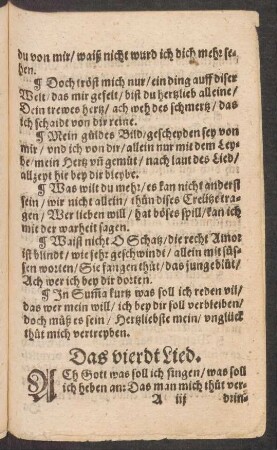 du von mir/ waiß nicht wurd ich dich mehr se⸗
hen.
¶ Doch tröst mich nur/ ein ding auff diser
Welt/ das mir gefelt/ bist du hertzlieb alleine/
Dein trewes hertz/ ach weh des schmertz/ das
ich schaidt von dir reine.
¶ Mein güldes Bild/ gescheyden sey von
mir/ vnd ich von dir/ allein nur mit dem Ley⸗
be/ mein Hertz vñ gemüt/ nach laut des Lied/
allzeyt hie bey dir bleybe.
¶ Was wilt du mehr/ es kan nicht anderst
sein/ wir nicht allein/ thün dises Creütze tra⸗
gen/ Wer lieben will/ hat böses spill/ kan ich
mit der warheit sagen.
¶ Waist nicht O Schatz/ die recht Amor
ist blindt/ wie sehr geschwindt/ allein mit süs⸗
sen worten/ Sie fangen thüt/ das junge blüt/
Ach wer ich bey dir dorten.
¶ In Suma kurtz was soll ich reden vil/
das wer mein will/ ich bey dir soll verbleiben/
doch müß es sein/ Hertzliebste mein/ vnglück
thüt mich vertreyben.
Das vierdt Lied.
ACh Gott was soll ich singen/ was soll
ich heben an: Das man mich thüt ver⸗
A iij drin⸗